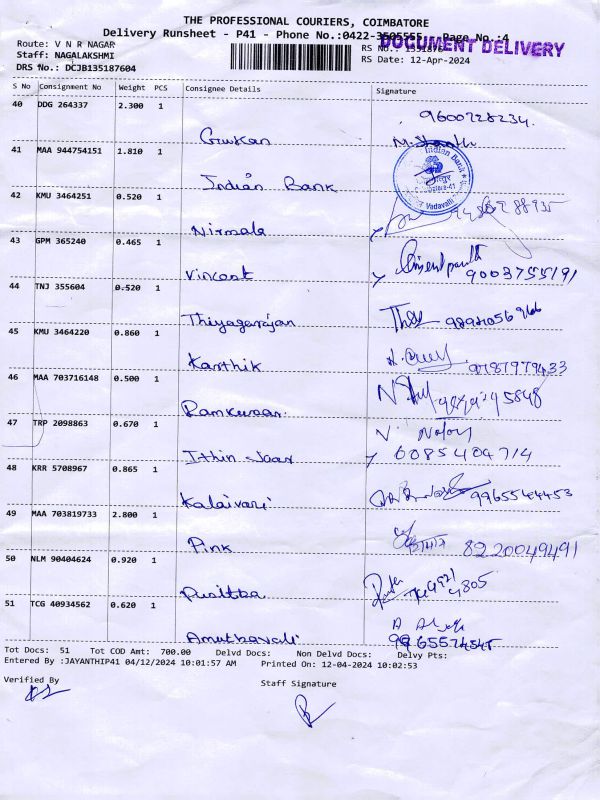 THE PROFESSIONAL COURIERS, COIMBATORE
Delivery Runsheet - P41 - Phone No.:0422-3505555 Page No.:4
DOCUMENT DELIVERY
Route: V N R NAGAR
Staff: NAGALAKSHMI
DRS No.: DCJB135187604
RS No.: 1351876
RS Date: 12-Apr-2024
S No Consignment No Weight PCS Consignee Details Signature
40 DDG 264337 2.300 1
9600728234
Gurukan
41 MAA 944754151 1.810 1
Indian Bank
Indian Bank
42 KMU 3464251 0.520 1
Nirmala
43 GPM 365240 0.465 1
Vincent
9003755191
44 TNJ 355604 0.520 1
Thiyagarajan
9894056966
45 KMU 3464220 0.860 1
Karthik
9787979433
46 MAA 703716148 0.500 1
Ramkumar
47 TRP 2098863 0.670 1
6085404714
48 KRR 5708967 0.865 1
Kalaivani
9965544453
49 MAA 703819733 2.800 1
Pink
8220049491
50 NLM 90404624 0.920 1
51 TCG 40934562 0.620 1
Amuthavali
Tot Docs: 51 Tot COD Amt: 700.00 Delvd Docs: Non Delvd Docs: Delvy Pts:
Entered By :JAYANTHIP41 04/12/2024 10:01:57 AM Printed On: 12-04-2024 10:02:53
Verified By
Staff Signature